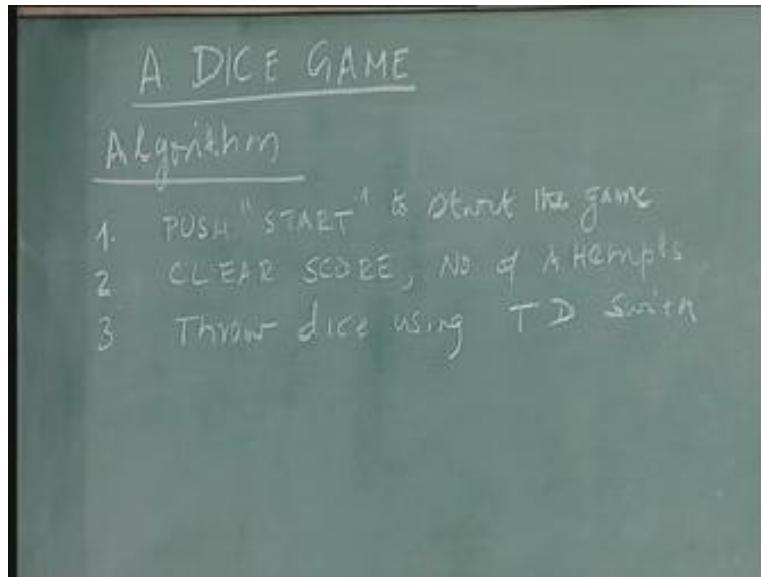 A DICE GAME
Algorithm
1. PUSH "START" to start the game
2 CLEAR SCORE, No of Attempts
3 Throw dice using TD Switch